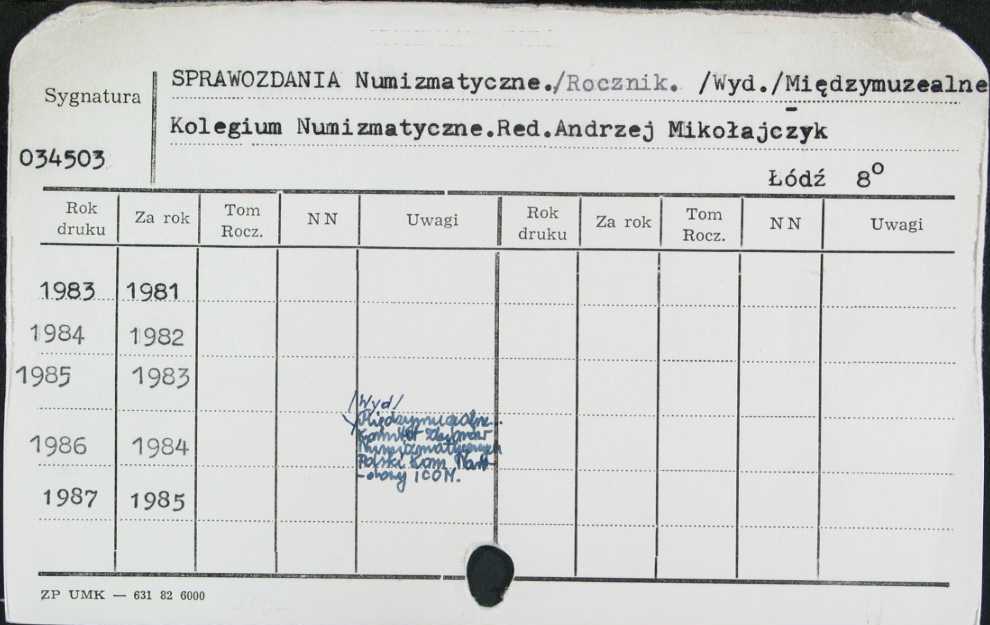 SPRAWOZDANIA Numizmatyczne./Rocznik. /Wyd./Międzymuzealne
Sygnatura
Kolegium Numizmatyczne.Red.Andrzej Mikołajczyk
034503
Łódź 8º
Rok druku Za rok Tom Rocz. NN Uwagi Rok druku Za rok Tom Rocz. NN Uwagi
1983 1981
1984 1982
1985 1983
/Wyd/
Międzymuzealne
Komitet Zbiorów
1986 1984 Numizmatycznych
Polski Kom. Naro-
-dowy ICOM.
1987 1985
ZP UMK — 631 82 6000